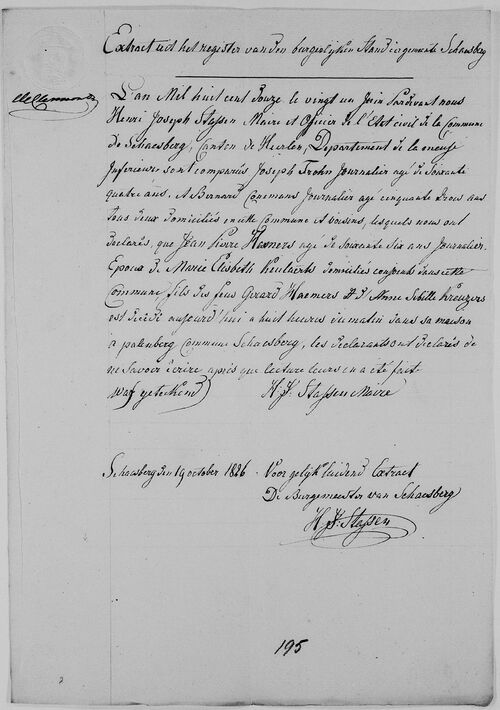 Extract uit het register van den burgerlyken Stand ingemeente Schaesberg
L'an Mil huit cent Douze le vingt un Juin Pardevant nous
Henri Joseph Stassen Maire et Officier de l'Etat civil de la Commune
de Schaesberg, Canton de Heerlen, Departement de la meuse
Inferieure sont comparés Joseph Frohn Journalier agé de soixante
quatre ans. et Bernard Conemans Journalier agé cinquante trois ans
tous deux domiciliés en cette Commune et voisins, lesquels nous ont
declarés, que Jean Pierre Haemers agé de soixante six ans Journalier.
Epoux de Marie Elisbeth Keulaerts domiciliés conjoints dans cette
Commune, fils des feus Gerard Haemers et d'Anne Sibille Kreuzers
est decedé aujourd'hui a huit heures du matin dans sa maison
à palenberg Commune Schaesberg, les declarants ont declarés de
ne savoir écrire après que lecture leurs en a été fait
was geteekend) H. J. Stassen Maire
Schaesberg den 19 october 1826 Voor gelijkluidend Extract
De Burgemeester van Schaesberg
H. J. Stassen
195